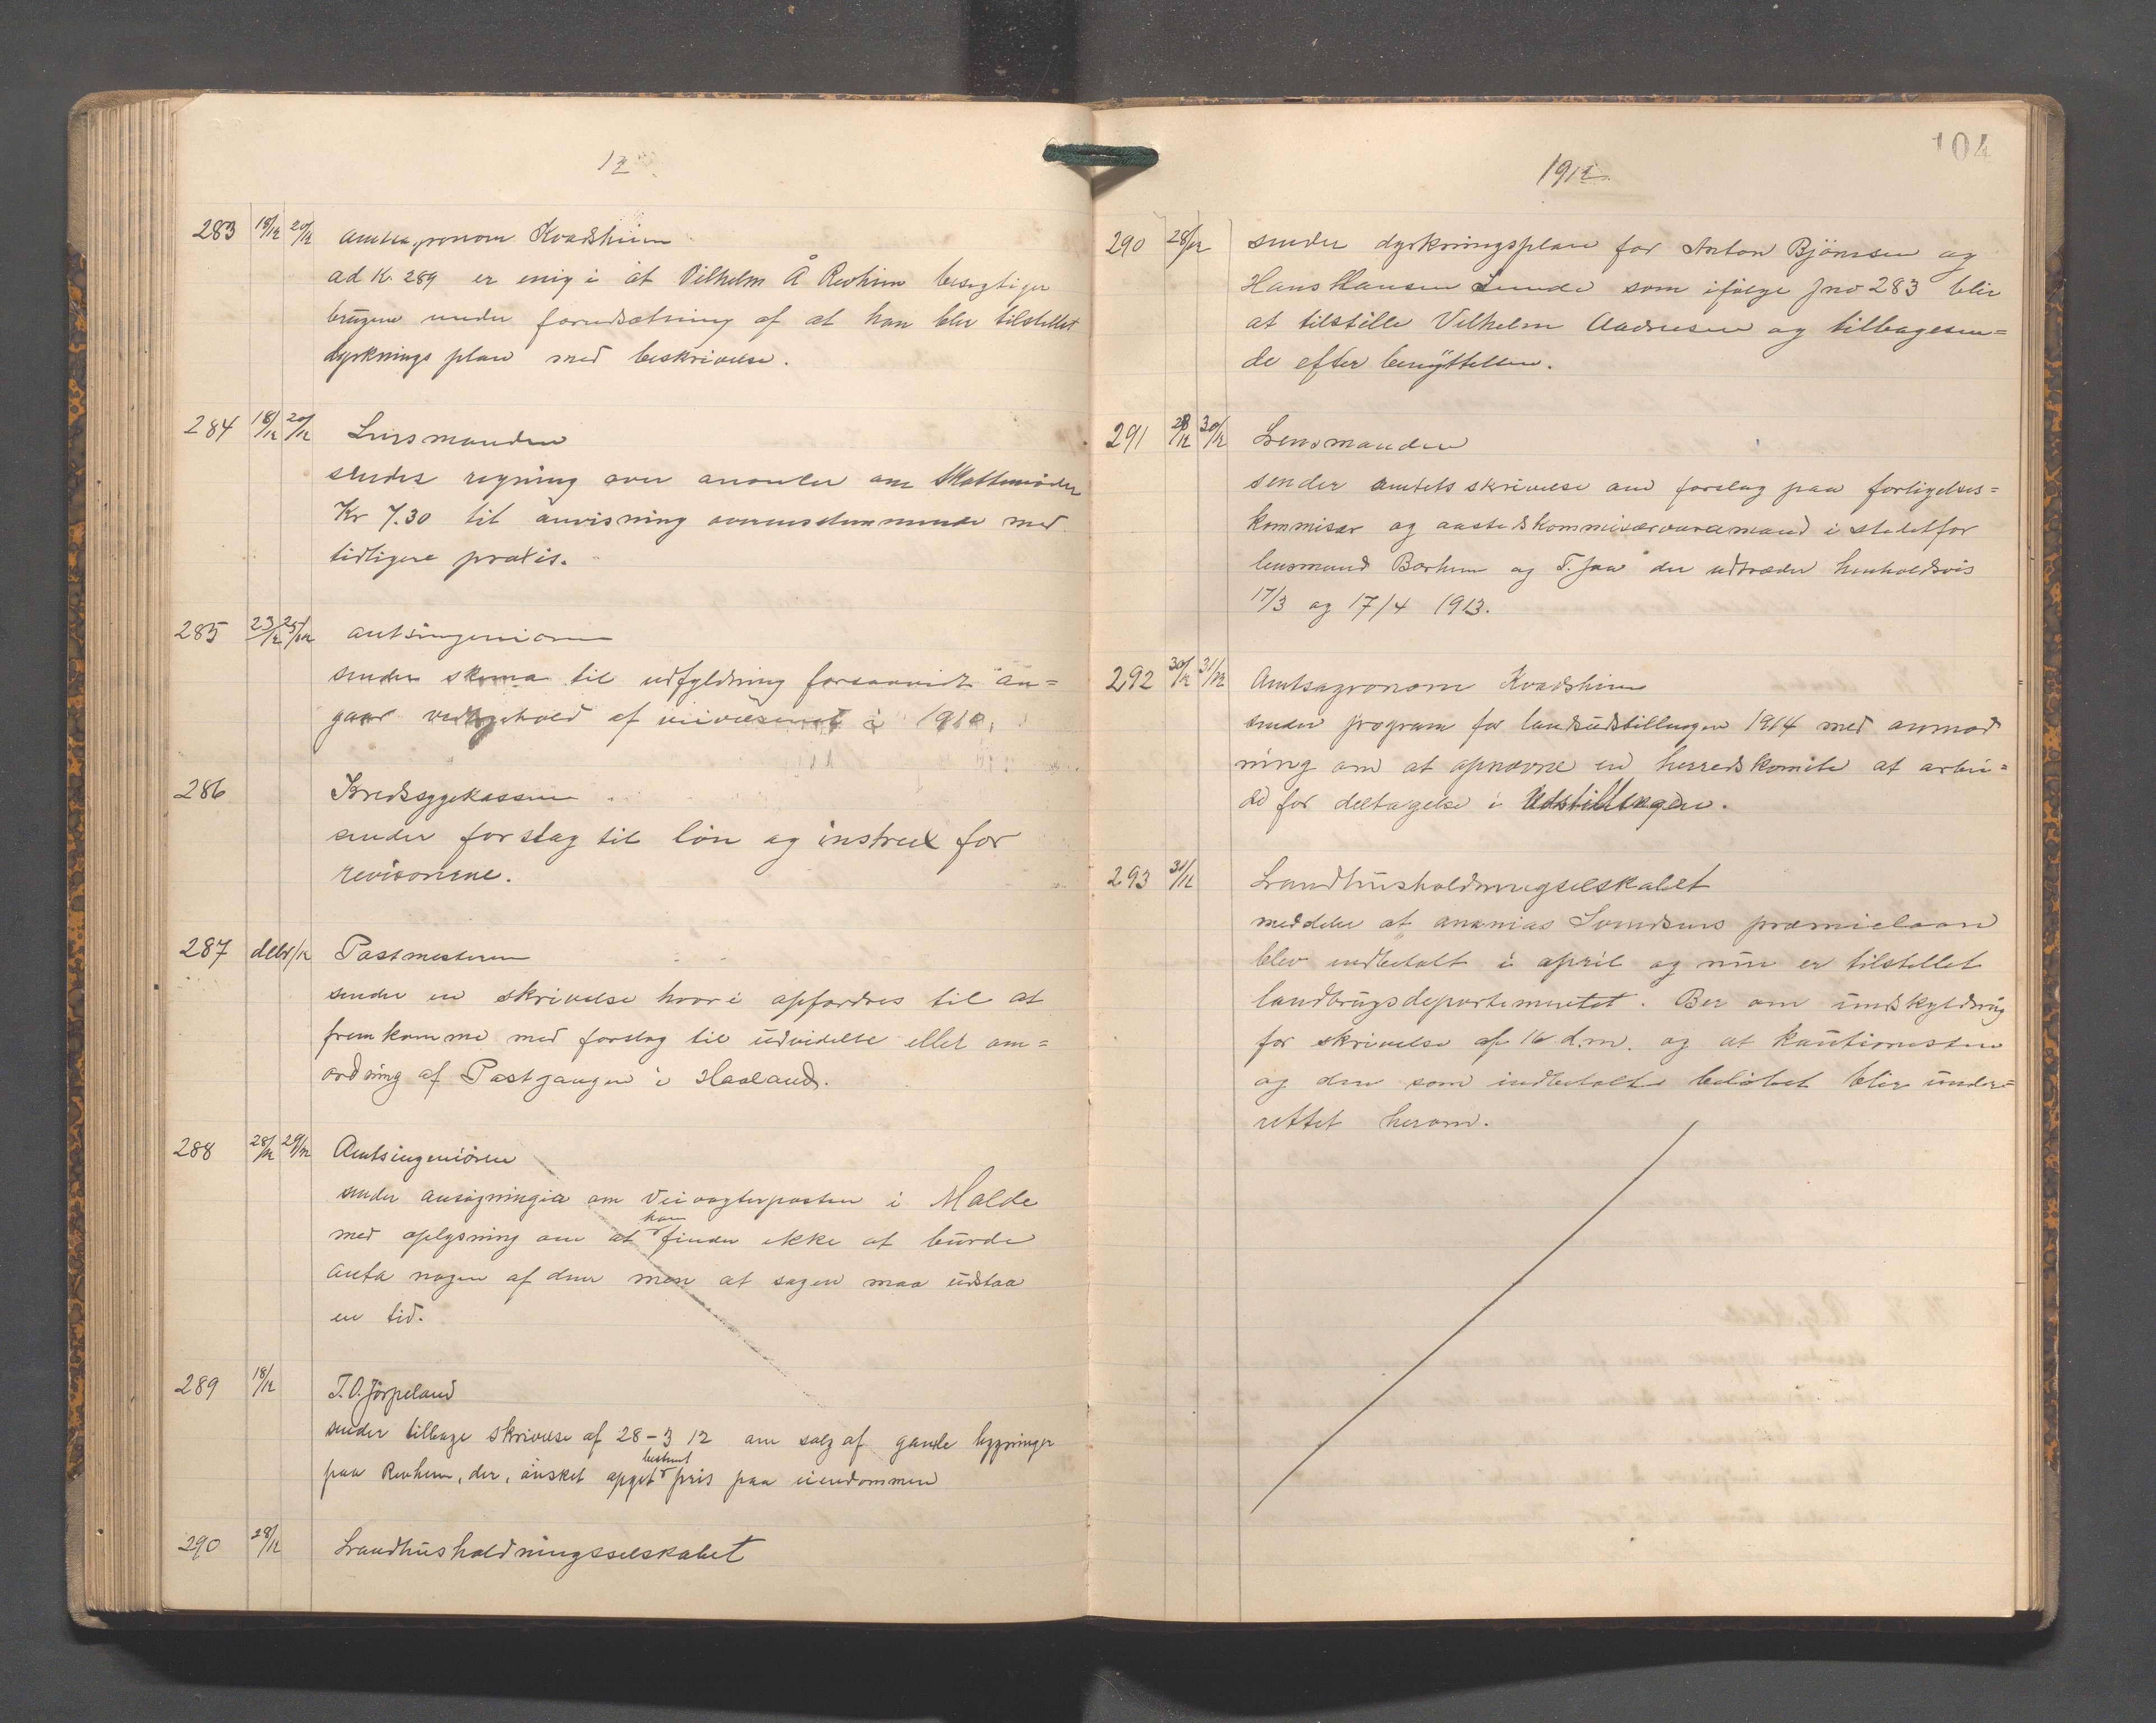 12
283 18/12 20/12 Amtsagronom Kvadsheim
ad K. 289 er enig i at Vilhelm Å Revheim besigtiger
brugene under forudsætning af at han blir tilstillet
dyrknings plan med beskrivelse.
284 18/12 20/12 Lensmanden
sender regning over anonser om Skattemøder
Kr 7.30 til anvisning overensstemmende med
tidligere praxis.
285 23/12 25/12 amtsingeniøren
sender skema til udfyldning forsaavidt an=
gaar vedligehold af veivæsenet i 1910.
286 Kredssygekassen
sender forslag til løn og instrux for
revisorerne.
287 Postmesteren
sender en skrivelse hvori opfordres til at
fremkomme med forslag til udvidelse eller om=
ordning af Postgangen i Haaland.
288 28/12 29/12 Amtsingeniøren
sender ansøgninger om Veivogterposten i Malde
med oplysning om at han finder ikke at burde
anta nogen af dem men at sagen maa udstaa
en tid.
289 18/12 T. O. Jørpeland
sender tilbage skrivelse af 28-3 12 om salg af gamle bygninger
paa Revheim, der, ønsket opgit bestemt pris paa eiendommen
290 28/12 Landhusholdningsselskabet
104
1912
290 28/12 sender dyrkningsplan for Anton Bjørnsen og
Hans Hansen Sunde som ifølge Jno 283 blir
at tilstille Vilhelm Aadnesen og tilbagesen=
de efter benyttelsen.
291 28/12 30/12 Lensmanden
sender amtets skrivelse om forslag paa forligelses=
kommisær og aastedskommisærvaramand i stedetfor
lensmand Borhem og T. Jaa der udtræder henholdsvis
17/3 og 17/4 1913.
292 30/12 31/12 Amtsagronom Kvadsheim
sender program for landsudstillingen 1914 med anmod
ning om at opnævne en herredskomite at arbei=
de for deltagelse i Udstillingen.
293 31/12 Landhusholdningselskabet
meddeler at ananias Svendsens præmielaan
blev indbetalt i april og nu er tilstillet
landbrugsdepartementet. Ber om undskyldning
for skrivelse af 16 d.m. og at kautionisten
og den som indbetalte beløbet blir under=
rettet herom.